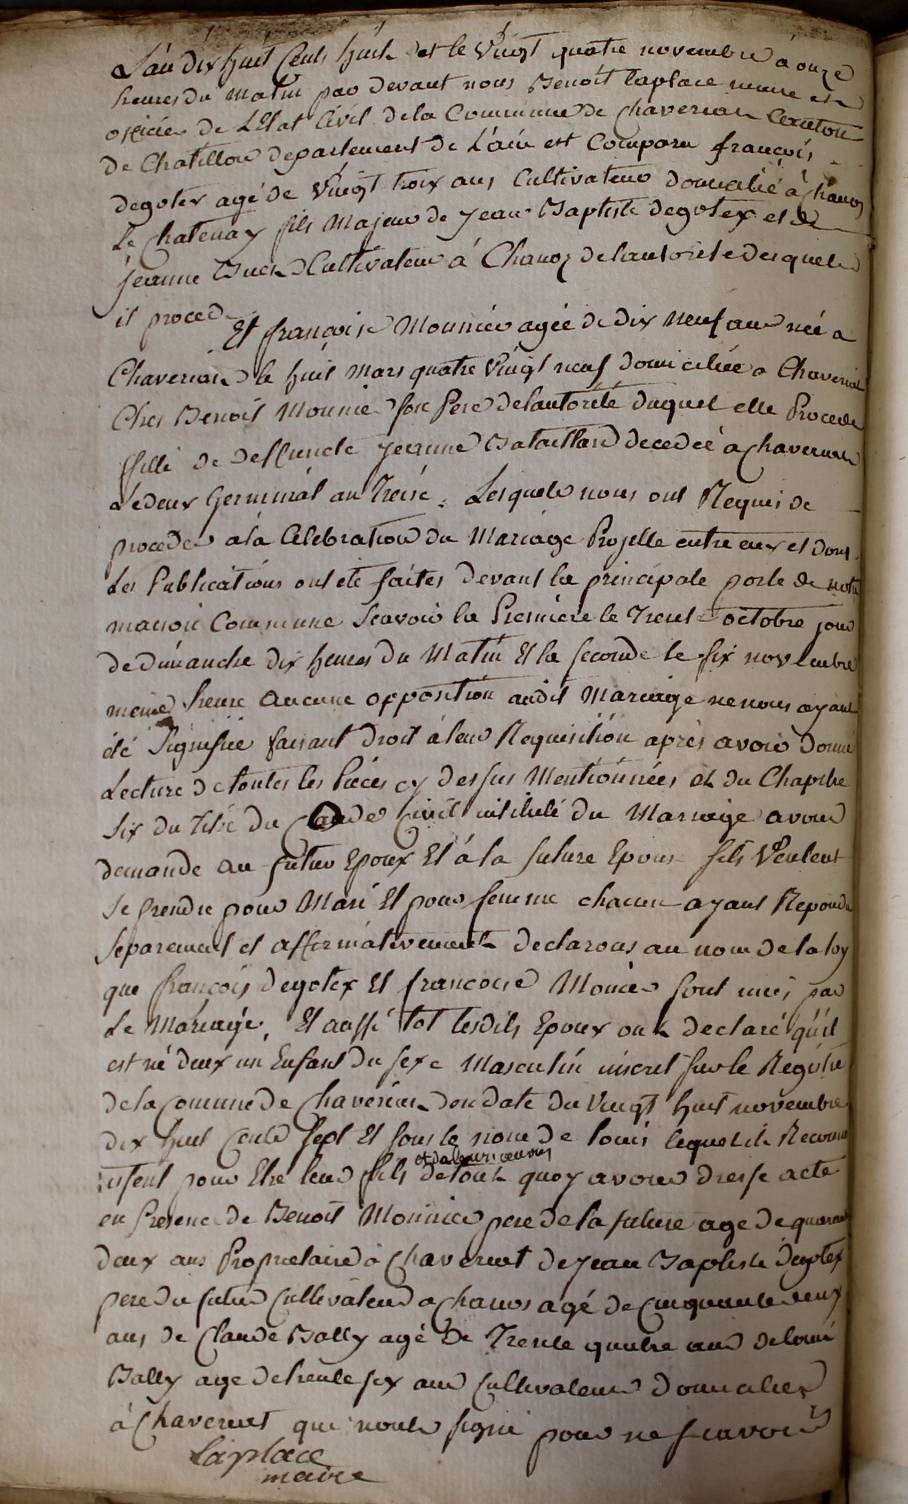 L'an dix huit Cents huit et le Vingt quatre novembre à onze
heures du matin par devant nous Benoit laplace maire et
officier de L'Etat Civil de la Commune de Chaveriat Canton
de Chatillon departement de L'ain est Comparu françois
degotex agé de Vingt trois ans Cultivateur domicilié à Chanoz
Le Chatenay fils Majeur de jean Baptiste degotex et de
jeanne Cultivateur à Chanoz de lautorité desquels
il procede
Et françoise Monnier agée de dix neuf ans née a
Chaveriat le huit Mars quatre Vingt neuf domiciliée a Chaveriat
Chez Benoit Monnier son Pere de lautorité duquel elle Procede
fille de deffuncte jeanne Bataillard decedée a Chaveriat
Le deux Germinal an Treise. Lesquels nous ont Requis de
proceder a la Célébration du Mariage Projette entre eux et dont
Les Publications ont été faites devant la principale porte de notre
maison Commune Scavoir la Premiere le Trente octobre jour
de dimanche dix heures du Matin Et la seconde le six novembre
meme heure aucune opposition audit Mariage ne nous ayant
été Signifiée faisant droit à leur Requisition apres avoir donné
Lecture de toutes les Pièces cy dessus Mentionnées et du Chapitre
Six du Titre du Code Civil intitulé du Mariage avons
demande au futur Epoux Et à la future Epouse sils Veulent
Se Prendre pour Mari Et pour femme chacun ayant Repondu
Separement et affirmativement declarons au nom de la loy
que françois degotex Et francoise Monier sont unis par
Le Mariage, Et aussi tot lesdits Epoux ont declaré qu'il
est né deux un Enfant du sexe Masculin inscrit sur le Registre
de la Commune de Chaveriat dendate du Vingt huit novembre
dix huit Cents sept Et sous le nom de louis lequel ils Reconnoi
ssent pour Etre leur fils
de tout quoy avons dressé acte
en Presence de Benoit Monnier pere de la future age de quarante
deux ans Proprietaire à Chaveriat de jean Baptiste Degotex
pere du futur Cultivateur a Chanos agé de Cinquante deux
ans de Claude Bally agé de Trente quatre ans de louis
Bally age de trente six ans Cultivateurs domiciliés
à Chaveriat qui n'ont signé pour ne scavoir
Laplace
maire